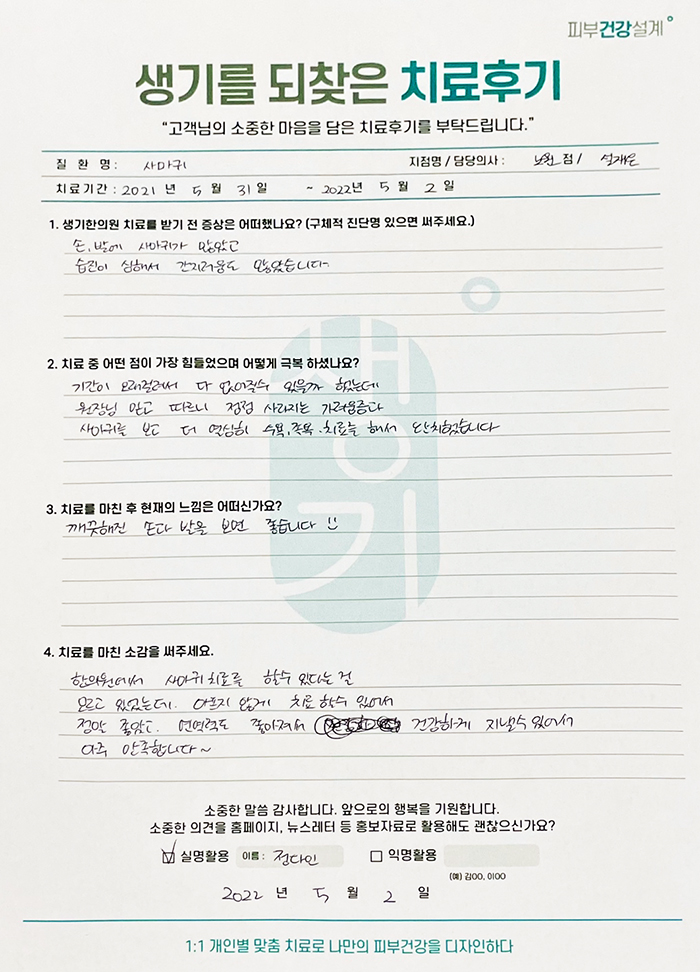 피부건강설계
생기를 되찾은 치료후기
“고객님의 소중한 마음을 담은 치료후기를 부탁드립니다.”
질 환 명 : 사마귀 지점명 / 담당의사 : 노원 점 / 설재은
치료기간 : 2021 년 5 월 31 일 ~ 2022년 5 월 2 일
1. 생기한의원 치료를 받기 전 증상은 어떠했나요? (구체적 진단명 있으면 써주세요.)
손, 발에 사마귀가 많았고
습진이 심해서 간지러움도 많았습니다.
2. 치료 중 어떤 점이 가장 힘들었으며 어떻게 극복 하셨나요?
기간이 오래걸려서 다 없어질수 있을까 했는데
원장님 믿고 따르니 점점 사라지는 가려움증과
사마귀를 보고 더 열심히 수욕, 족욕, 치료를 해서 완치했습니다
생기
3. 치료를 마친 후 현재의 느낌은 어떠신가요?
깨끗해진 손과 발을 보면 좋습니다
4. 치료를 마친 소감을 써주세요.
한의원에서 사마귀 치료를 할수 있다는 걸
모르고 있었는데. 아프지 않게 치료 할수 있어서
정말 좋았고. 면역력도 좋아져서 건강하게 지낼수 있어서
아주 만족합니다~
소중한 말씀 감사합니다. 앞으로의 행복을 기원합니다.
소중한 의견을 홈페이지, 뉴스레터 등 홍보자료로 활용해도 괜찮으신가요?
실명활용 이름 : 전다인 익명활용
(예) 김OO, 이OO
2022 년 5 월 2 일
1:1 개인별 맞춤 치료로 나만의 피부건강을 디자인하다